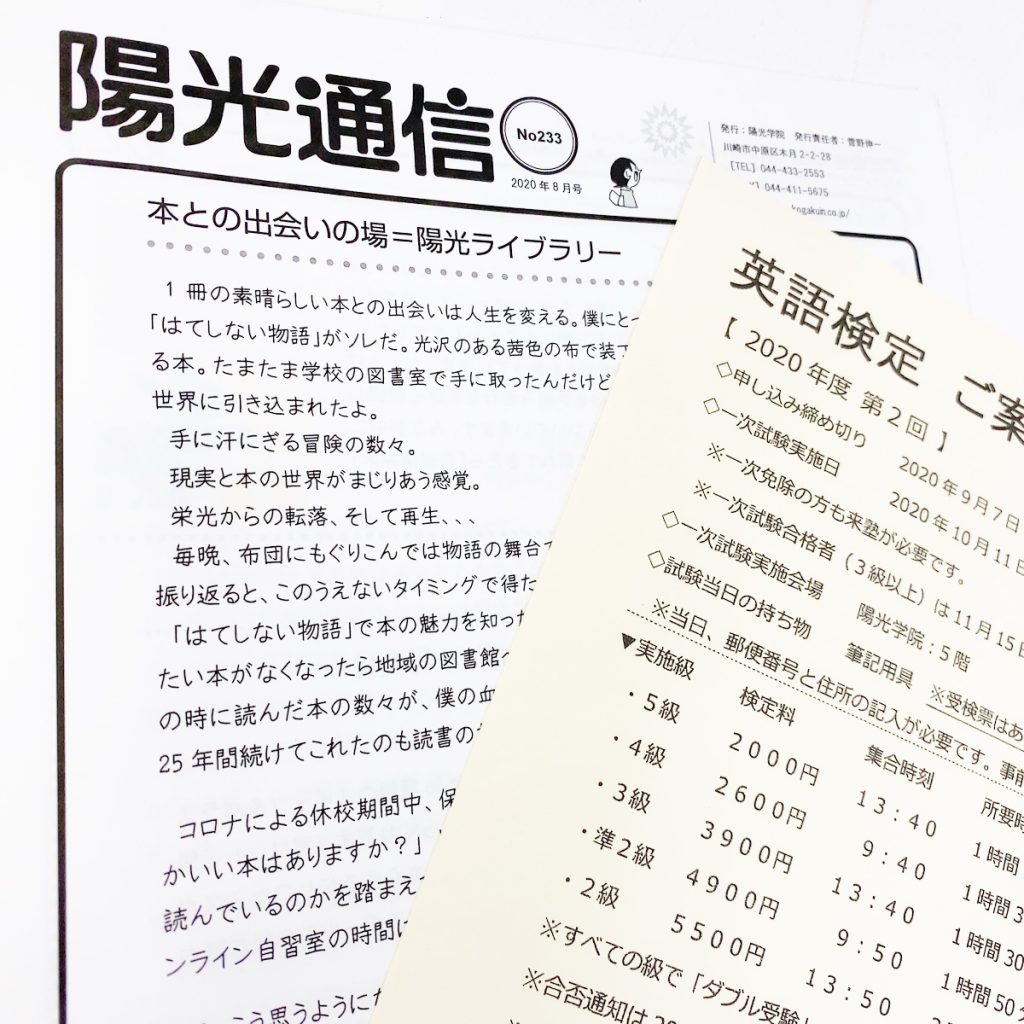 陽光通信
No233
2020年8月号
発行：陽光学院　発行責任者：菅野伸一
川崎市中原区木月2-2-28
［TEL］044-433-2553
044-411-5675
kogakuin.co.jp/
本との出会いの場＝陽光ライブラリー
1 冊の素晴らしい本との出会いは人生を変える。僕にとっ
「はてしない物語」がソレだ。光沢のある茜色の布で装丁
る本。たまたま学校の図書室で手に取ったんだけど
世界に引き込まれたよ。
手に汗にぎる冒険の数々。
現実と本の世界がまじりあう感覚。
栄光からの転落、そして再生、、、
毎晩、布団にもぐりこんでは物語の舞台
振り返ると、このうえないタイミングで得た
「はてしない物語」で本の魅力を知った
たい本がなくなったら地域の図書館へ
の時に読んだ本の数々が、僕の血
25 年間続けてこれたのも読書の
コロナによる休校期間中、保
かいい本はありますか？」
読んでいるのかを踏まえ
ンライン自習室の時間に
こう思うように
英語検定　ご案
【 2020 年度 第 2 回 】
◇申し込み締め切り　2020 年 9 月 7 日
◇一次試験実施日　2020 年 10 月 11 日
※一次免除の方も来塾が必要です。
※一次試験合格者（3級以上）は 11 月 15 日
◇一次試験実施会場　陽光学院：5 階
◇試験当日の持ち物　筆記用具　※受検票はあ
※当日、郵便番号と住所の記入が必要です。事前
▼実施級　検定料　集合時刻　所要時
・5級　2000円　13：40　1時間
・4級　2600円　9：40　1時間3
・3級　3900円　13：40　1時間30
・準2級　4900円　9：50　1時間50分
・2級　5500円　13：50
※すべての級で「ダブル受験」
※合否通知は 20